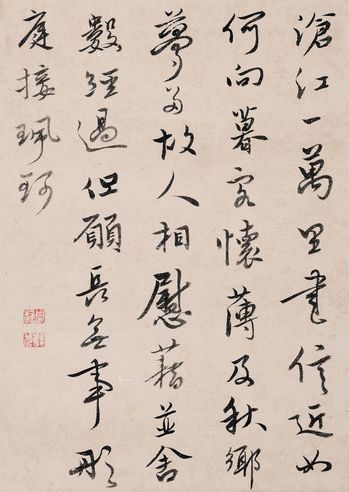 滄江一萬里書信近如
何向暮客懷薄及秋鄉
夢多故人相慰藉並舍
數經過但願長無事彤
庭接珮珂